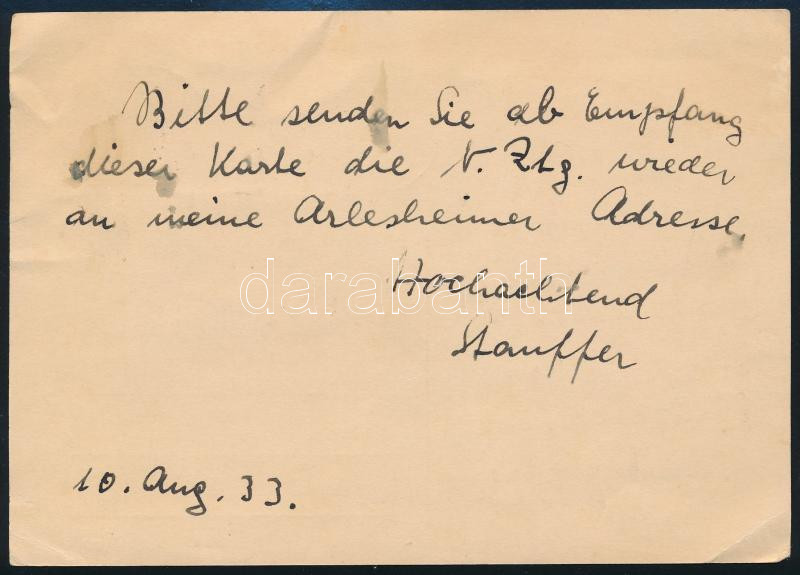 Bitte senden Sie ab Empfang
dieser Karte die N. Ztg. wieder
an meine Arlesheimer Adresse.
Hochachtend
Stauffer
10. Aug. 33.
darabanth